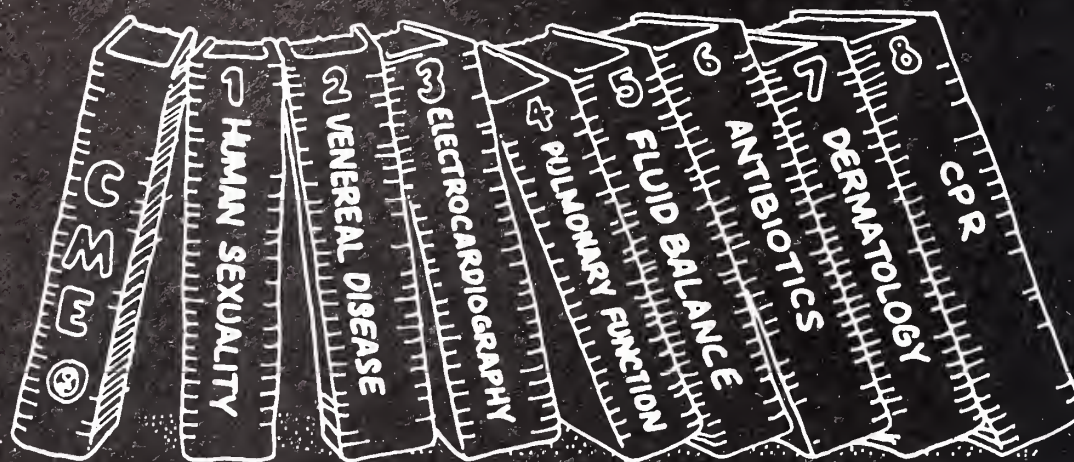 CME
1 HUMAN SEXUALITY
2 VENEREAL DISEASE
3 ELECTROCARDIOGRAPHY
4 PULMONARY FUNCTION
5 FLUID BALANCE
6 ANTIBIOTICS
7 DERMATOLOGY
8 CPR